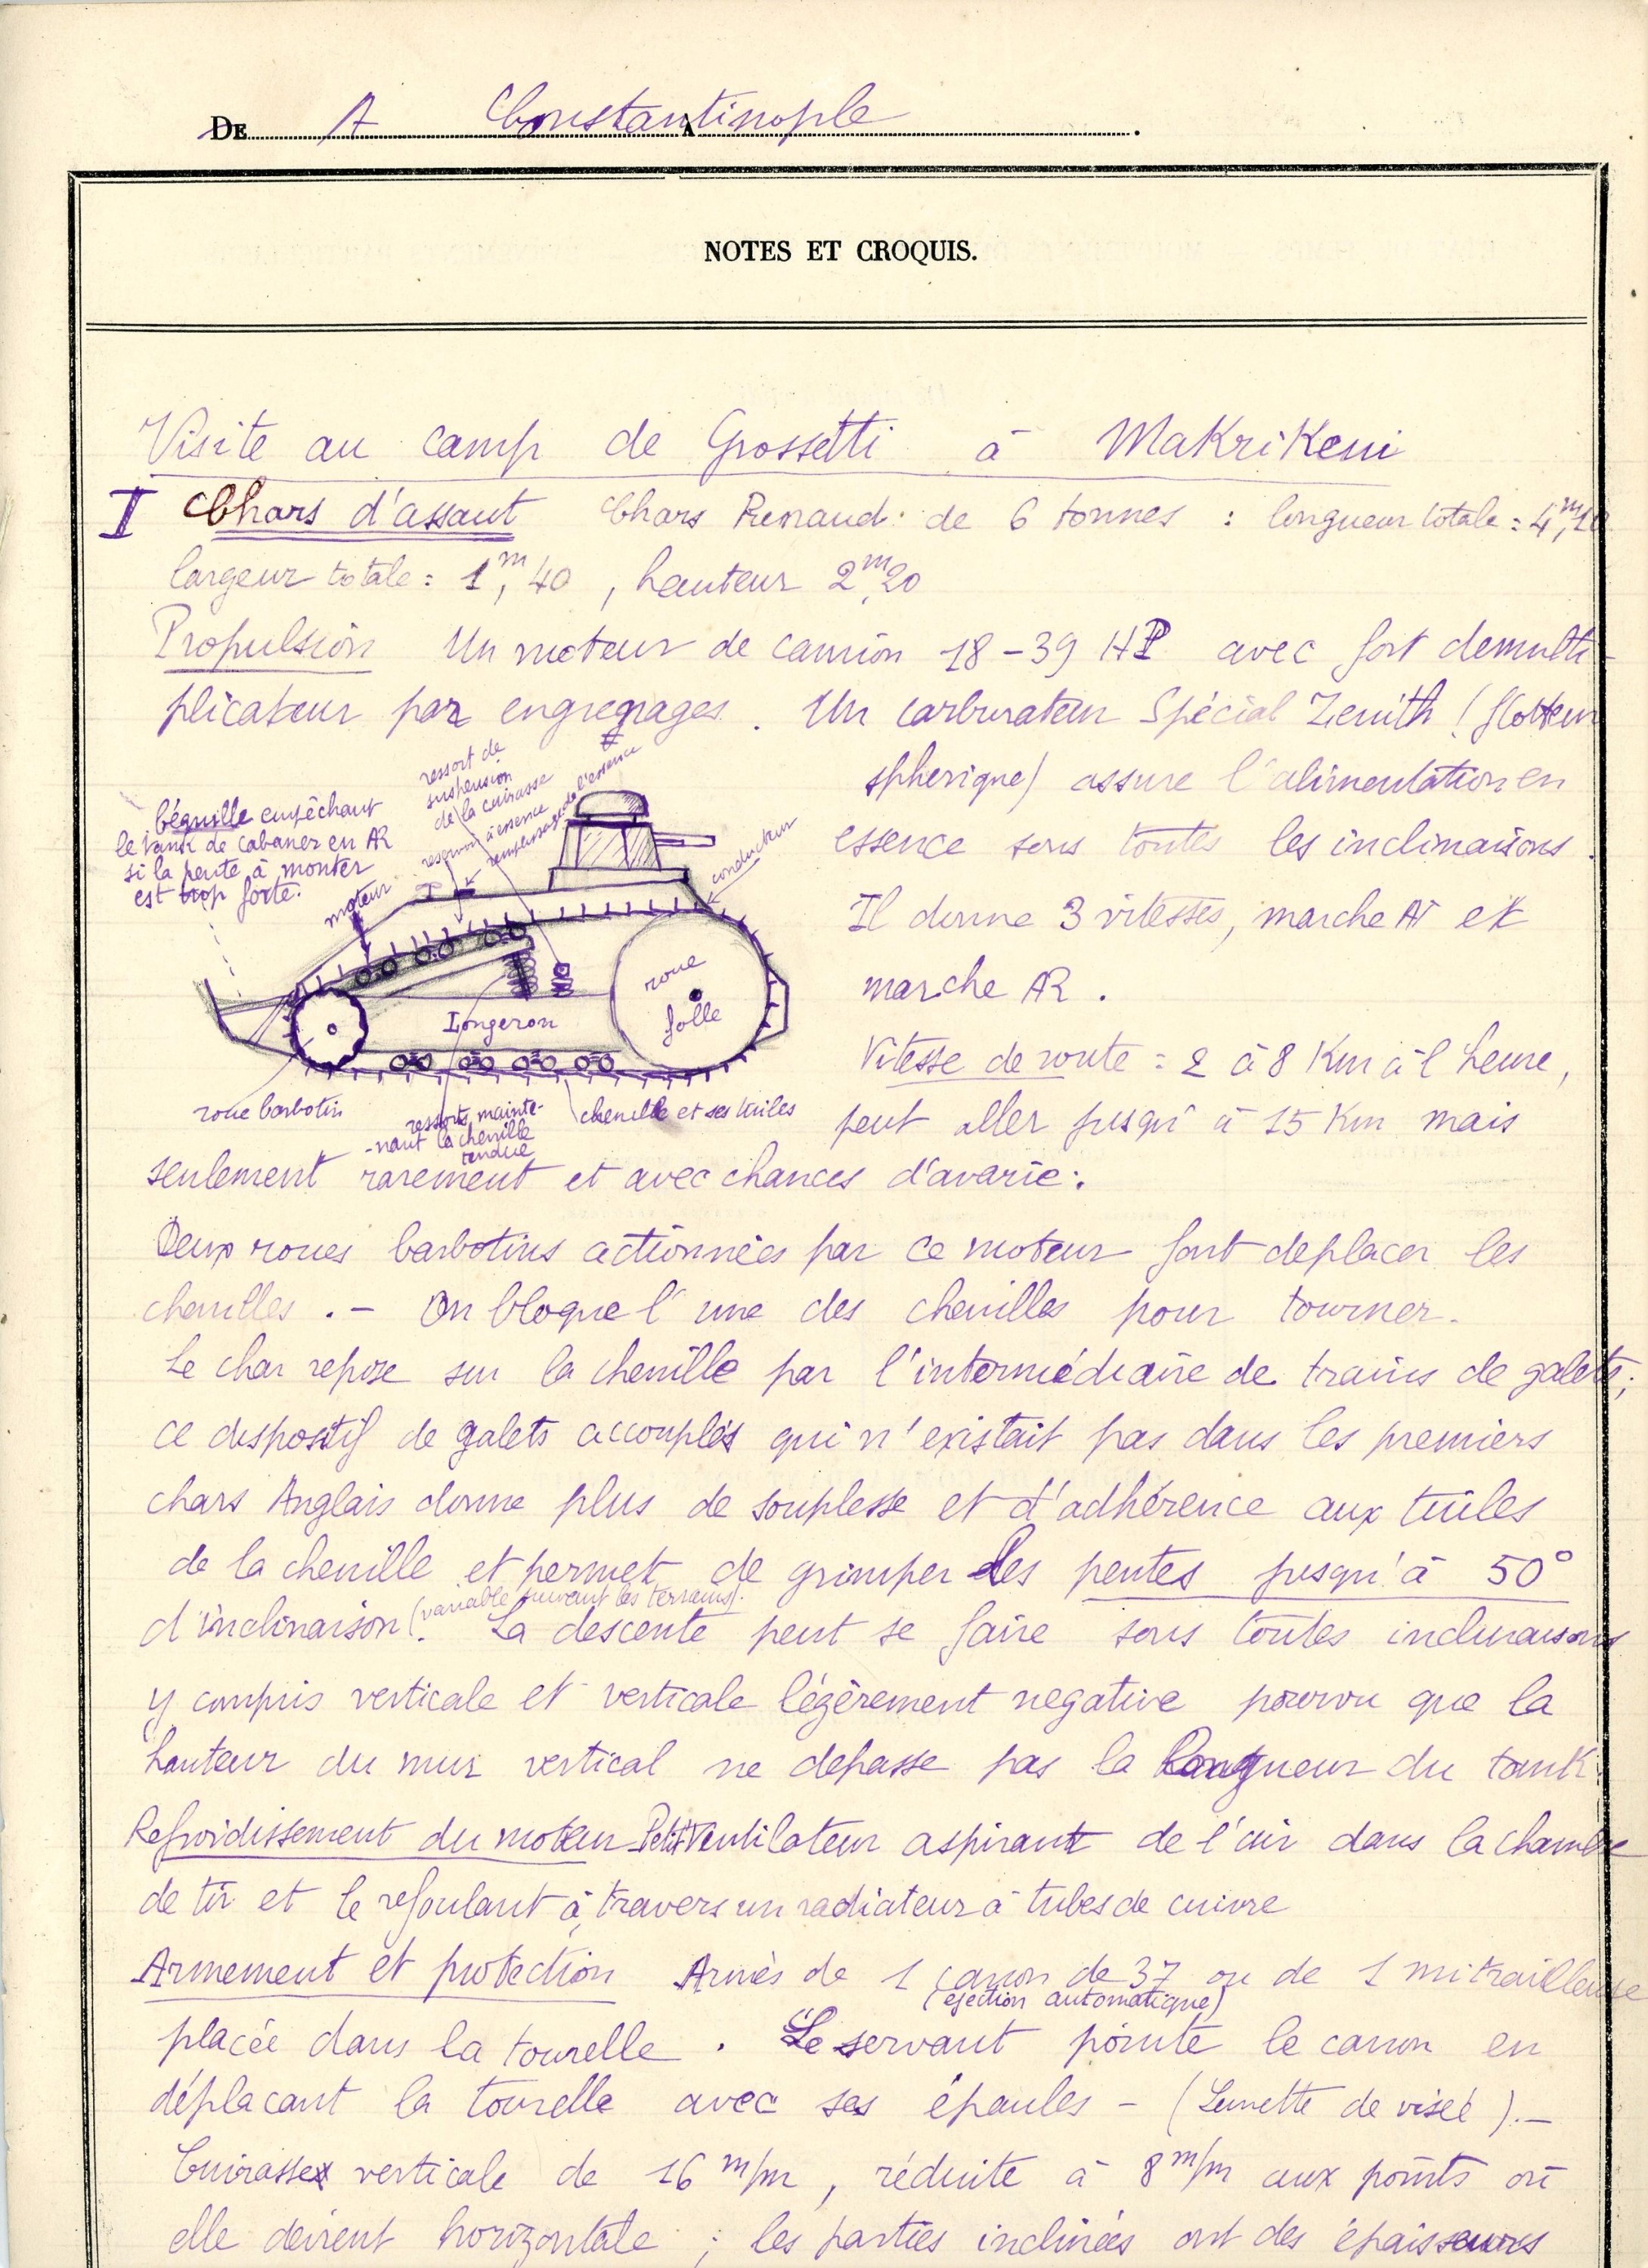 DE A Constantinople A
NOTES ET CROQUIS.
Visite au camp de Grossetti à MaKriKeui
I Chars d'assaut Chars Renaud de 6 tonnes : longueur totale = 4m,10
largeur totale = 1m,40 , hauteur 2m,20
Propulsion Un moteur de camion 18-39 HP avec fort demulti-
plicateur par engregrages. Un carburateur Spécial Zenith (flotteur
spherique) assure l'alimentation en
essence sous toutes les inclinaisons.
Il donne 3 vitesses, marche AV et
marche AR.
Vitesse de route = 2 à 8 Km à l'heure,
peut aller jusqu'à 15 Km mais
béquille empêchant
le tank de cabaner en AR
si la pente à monter
est trop forte.
moteur
ressort de
suspension
de la cuirasse
reservoir à essence
remplissage de l'essence
conducteur
roue
folle
Longeron
roue barbotin
ressorts mainte-
-nant la chenille
tendue
chenille et ses tuiles
seulement rarement et avec chances d'avarie.
Deux roues barbotins actionnées par ce moteur font deplacer les
chenilles . - On bloque l'une des chenilles pour tourner.
Le char repose sur la chenille par l'intermédiaire de trains de galets;
ce dispositif de galets accouplés qui n'existait pas dans les premiers
chars Anglais donne plus de souplesse et d'adhérence aux tuiles
de la chenille et permet de grimper des pentes jusqu'à 50°
d'inclinaison (variable suivant les terrains). La descente peut se faire sous toutes inclinaisons
y compris verticale et verticale légèrement negative pourvu que la
hauteur du mur vertical ne depasse pas la longueur du tank
Refroidissement du moteur Petit Ventilateur aspirant de l'air dans la chambre
de tir et le refoulant à travers un radiateur à tubes de cuivre
Armement et protection Armés de 1 canon de 37 ou de 1 mitrailleuse
(ejection automatique)
placée dans la tourelle . Le servant pointe le canon en
déplacant la tourelle avec ses épaules - (Lunette de visée). -
Cuirasse verticale de 16 m/m, réduite à 8 m/m aux points où
elle devient horizontale ; les parties inclinées ont des épaisseurs